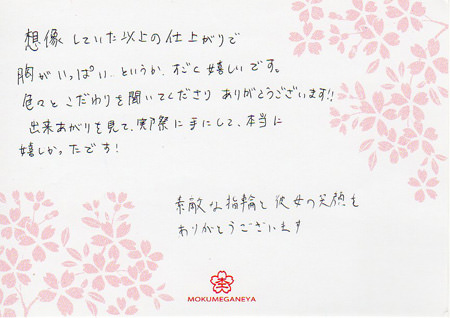 想像していた以上の仕上がりで
胸がいっぱい、というか、すごく嬉しいです。
色々とこだわりを聞いてくださりありがとうございます!!
出来あがりを見て、実際に手にして、本当に
嬉しかったです!
素敵な指輪と彼女の笑顔を
ありがとうございます
MOKUMEGANEYA